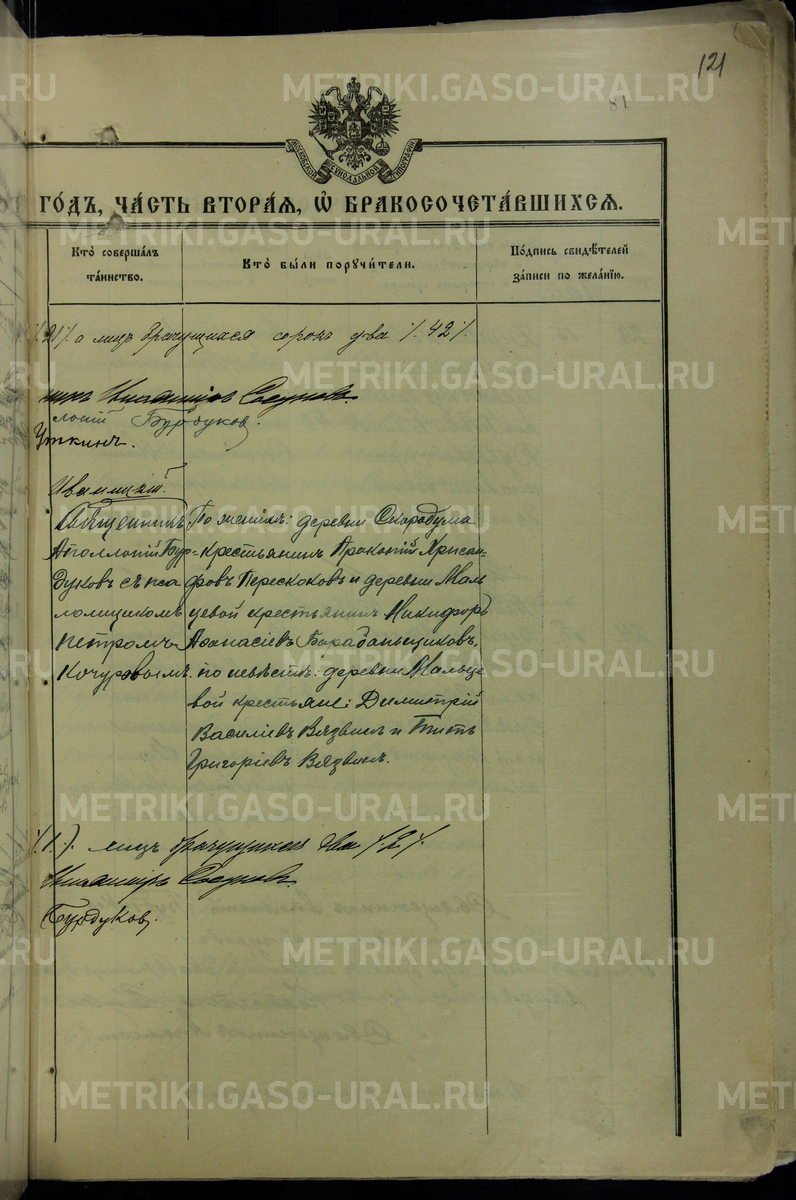 121
81
МОСКОВСКОЙ СѴНОДАЛЬНОЙ ТИПОГРАФІИ
ГОДЪ, ЧАСТЬ ВТОРАЯ, Ѡ БРАКОСОЧЕТАВШИХСЯ.
Кто совершалъ таинство.
Кто были поручители.
Подпись свидѣтелей записи по желанію.
/.21/. а лицъ брачущихся сорокъ два /.42/.
Бурдуковъ.
Уткинъ.
Священникъ
Аполлоній Бур-
дуковъ съ пса
ломщикомъ
Петромъ
Кочуровымъ.
По женихѣ: деревни Скородума
крестьянинъ Прокопій Хрисан-
фовъ Перескоковъ и деревни Маль
цевой крестьянинъ Никифоръ
Аѳанасіевъ Барабаньщиковъ,
по невѣстѣ: деревни Мальце
вой крестьяне: Димитрій
Василіевъ Вязвинъ и Титъ
Григоріевъ Вязвинъ.
/.1./. лицъ брачущихся два /.2/.
Бурдуковъ.
METRIKI.GASO-URAL.RU